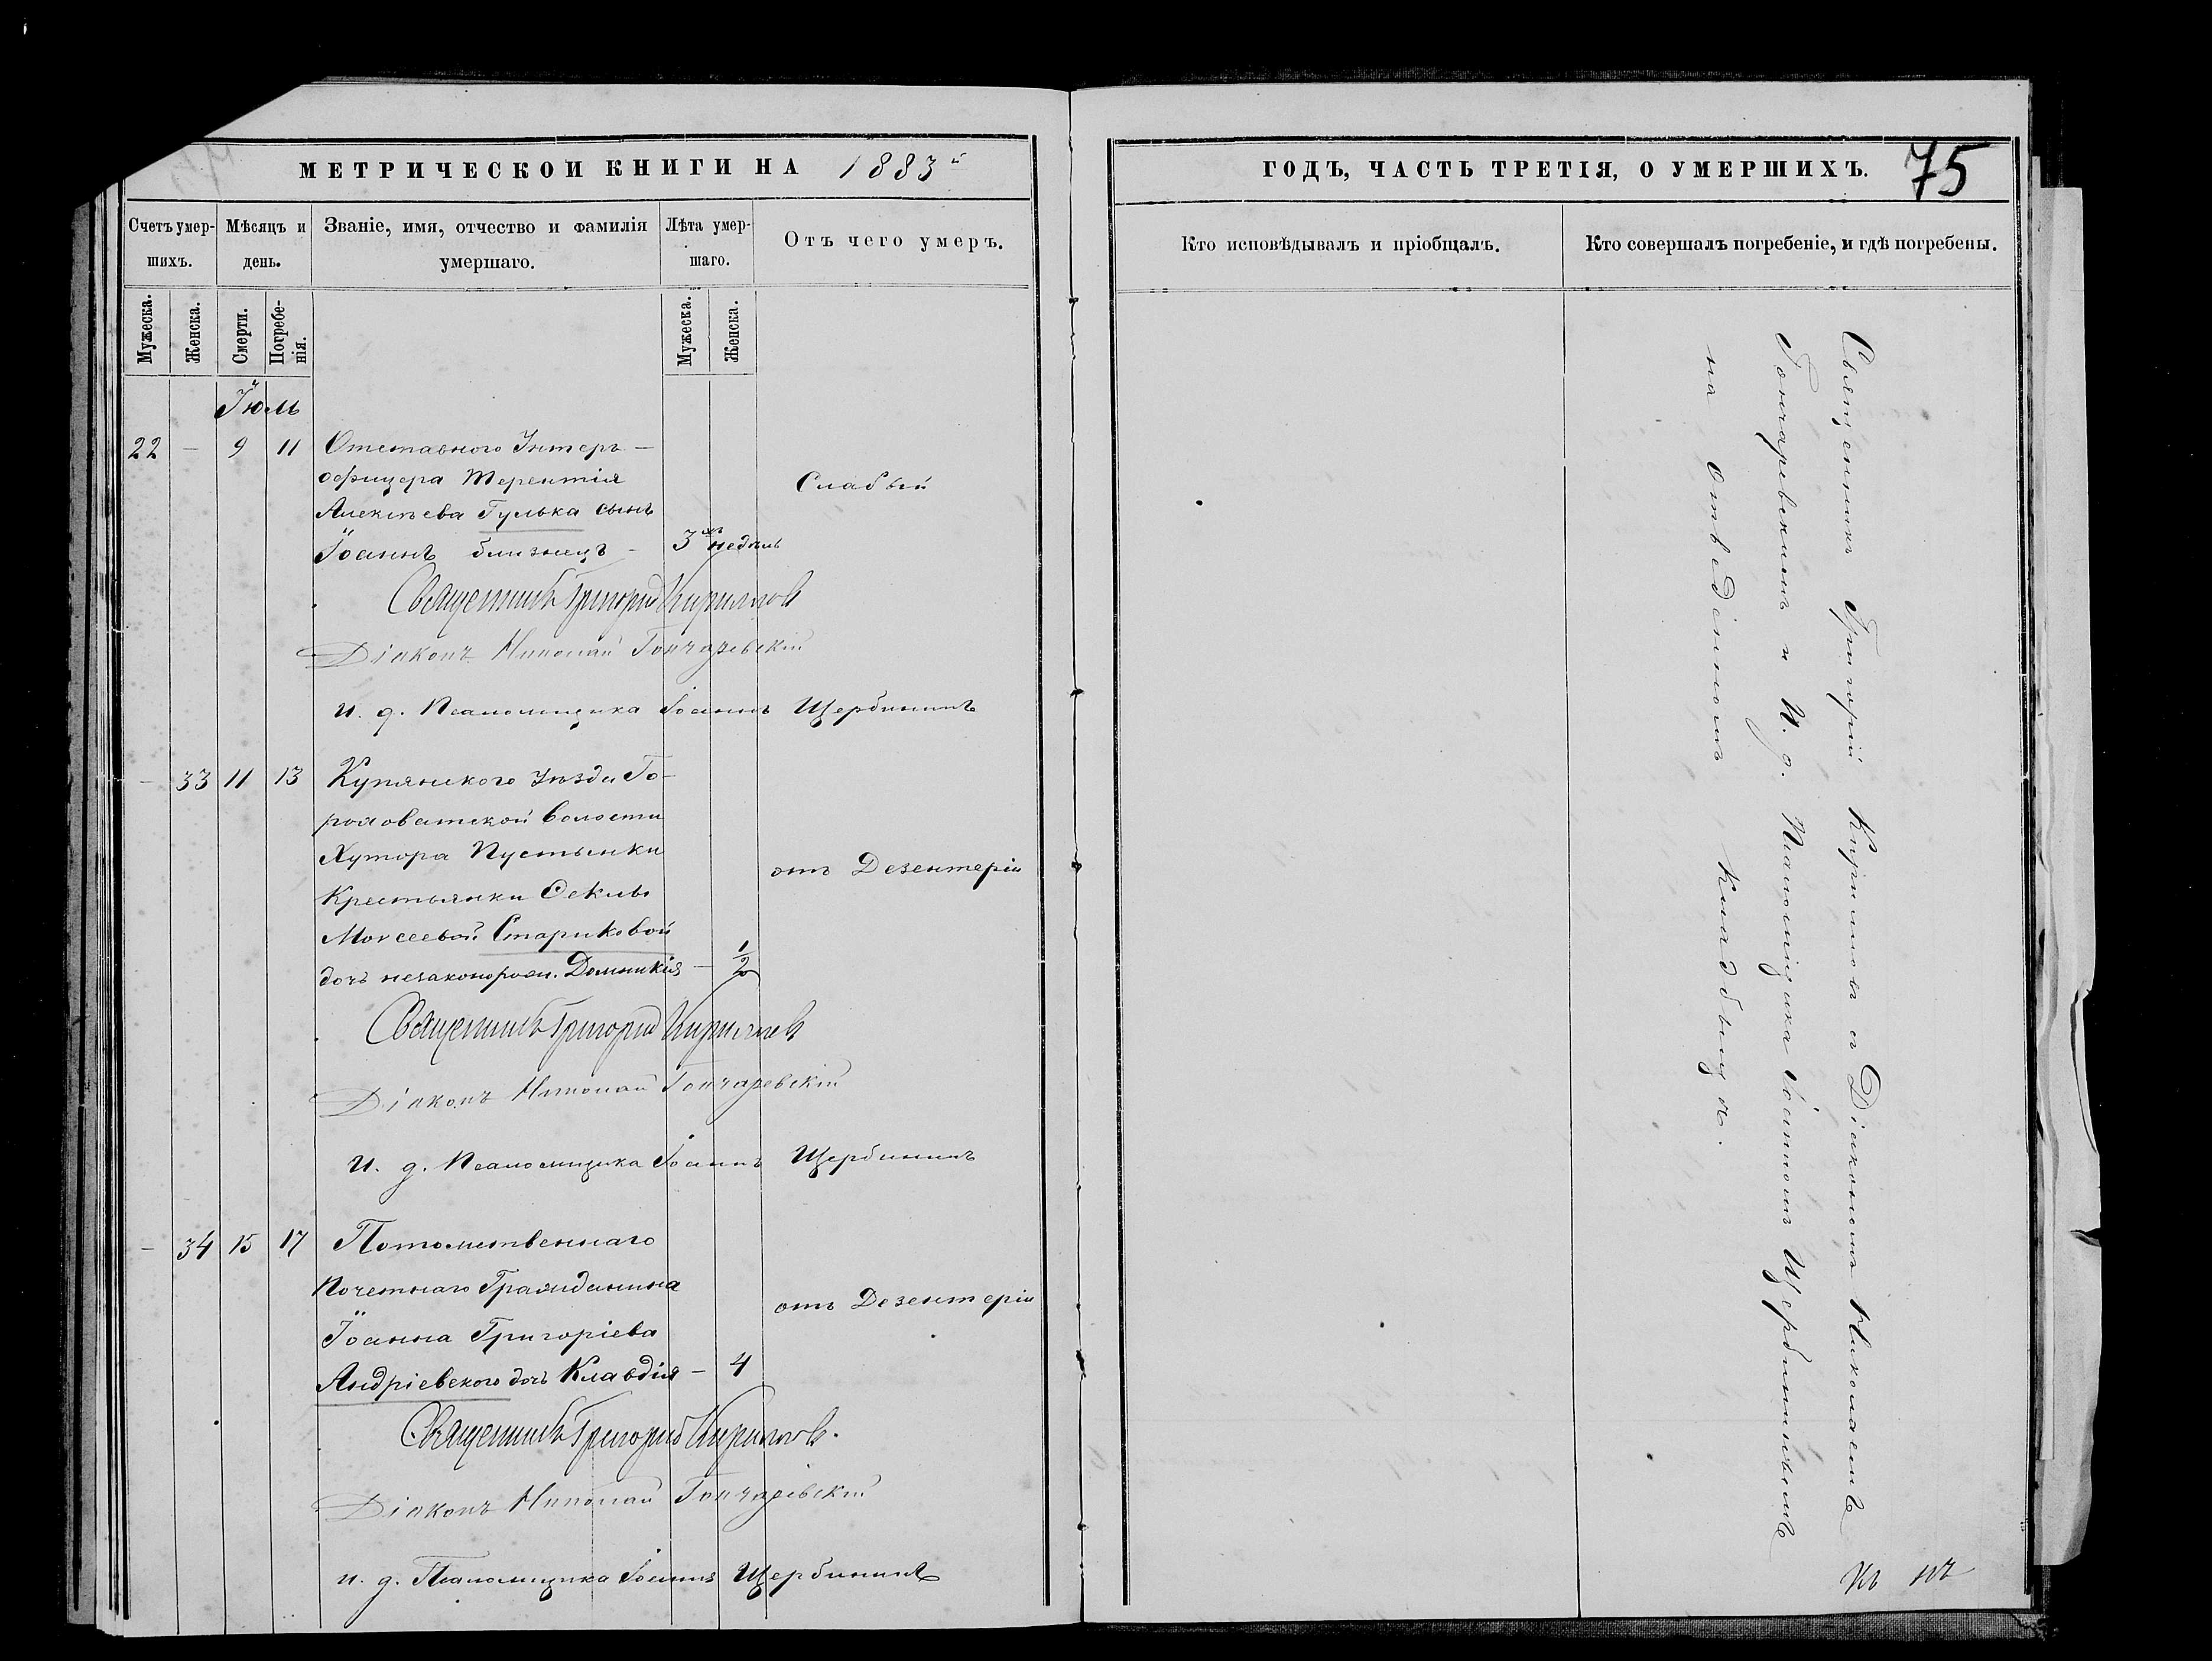 МЕТРИЧЕСКОЙ КНИГИ НА 1883й
Счетъ умер-
шихъ.
Мѣсяцъ и
день.
Званіе, имя, отчество и фамилія
умершаго.
Лѣта умер-
шаго.
Отъ чего умеръ.
Мужеска.
Женска.
Смерти.
Погребе-
нія.
Мужеска.
Женска.
Іюль
22 — 9 11 Отставного Унтеръ —
офицера Терентія
Слабый
Алексѣева Гулька сынъ
Іоаннъ близнецъ - 3хъ недѣль
Священникъ Григорій Кирилловъ
Діаконъ Николай Гончаревскій
И. д. Псаломщика Іоаннъ Щербининъ
— 33 11 13 Купянского Уѣзда Го-
роховатской волости
Хутора Пустынки
отъ Дезентеріи
Крестьянки Феклы
Моисеевой Стариковой
дочь незаконорож. Домникія — 1/2
Священникъ Григорій Кирилловъ
Діаконъ Николай Гончаревскій
И. д. Псаломщика Іоаннъ Щербининъ
— 34 15 17 Потомственнаго
Почетнаго Гражданина
отъ Дезентеріи
Іоанна Григоріева
Андріевского дочь Клавдія — 4
Священникъ Григорій Кирилловъ.
Діаконъ Николай Гончаревскій
и. д. Псаломщика Іоаннъ Щербининъ
ГОДЪ, ЧАСТЬ ТРЕТІЯ, О УМЕРШИХЪ.
75
Кто исповѣдывалъ и пріобщалъ.
Кто совершалъ погребеніе, и гдѣ погребены.
Священникъ Григорій Кирилловъ съ Діакономъ Николаемъ
Гончаревскимъ и И. д. Псаломщика Іоанномъ Щербининымъ
на отведенномъ кладбищѣ.